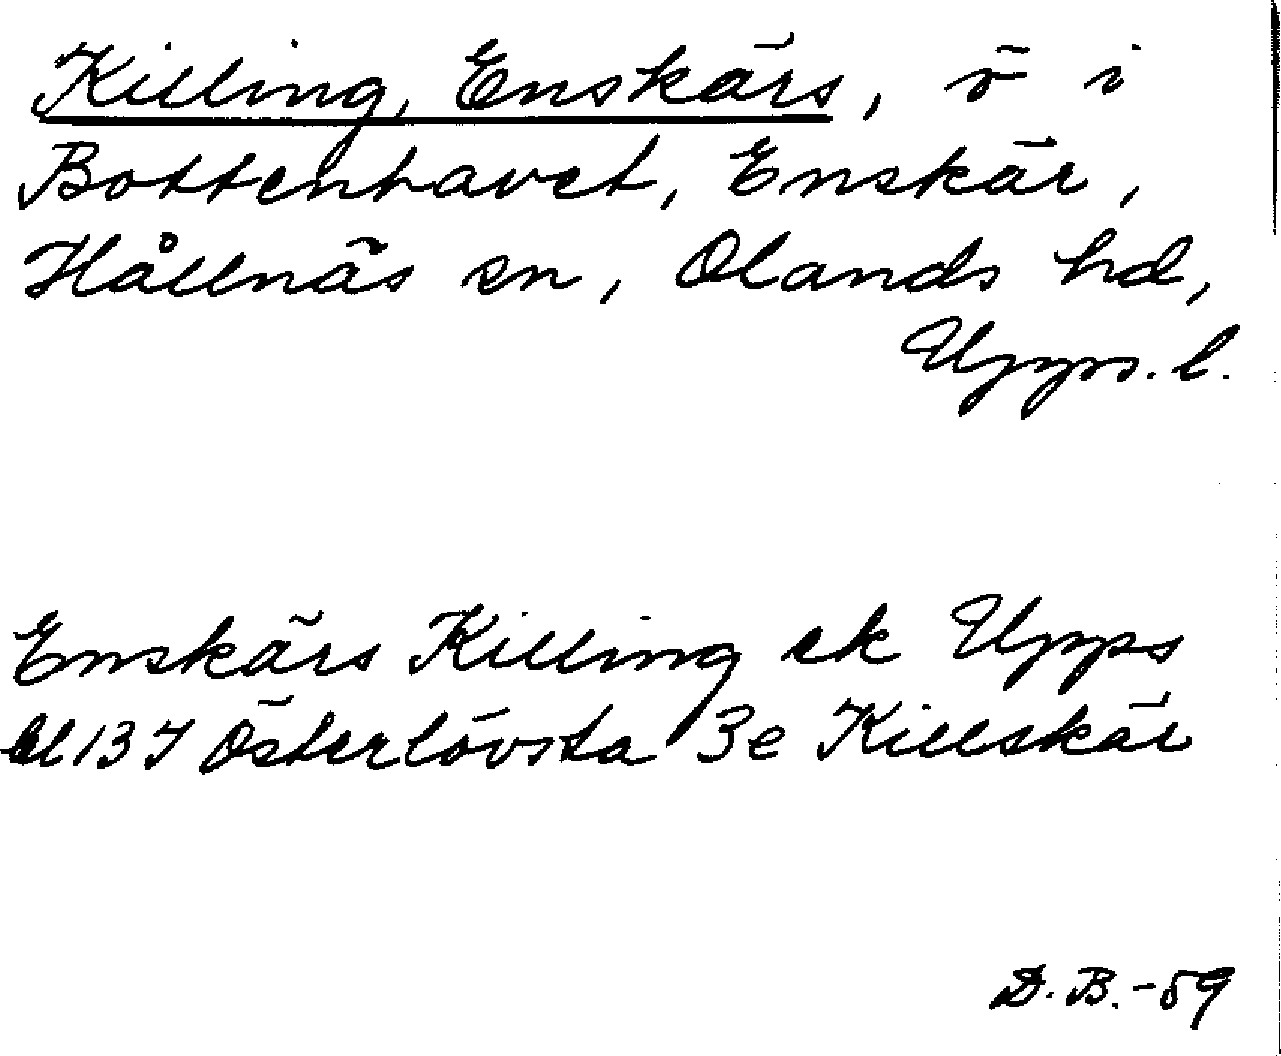 Killing, Enskärs, ö i
Bottenhavet, Enskär,
Hållnäs sn, Olands hd,
Upps. l.
Enskärs Killing ek Upps
bl 137 Österlövsta 3e Killskär
D. B. -59